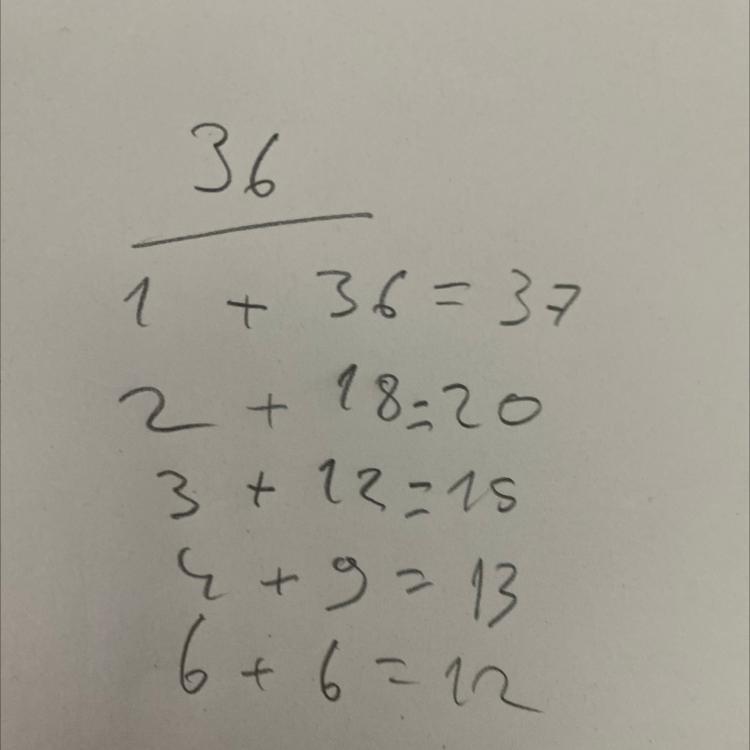 36
1 + 36 = 37
2 + 18 = 20
3 + 12 = 15
4 + 9 = 13
6 + 6 = 12